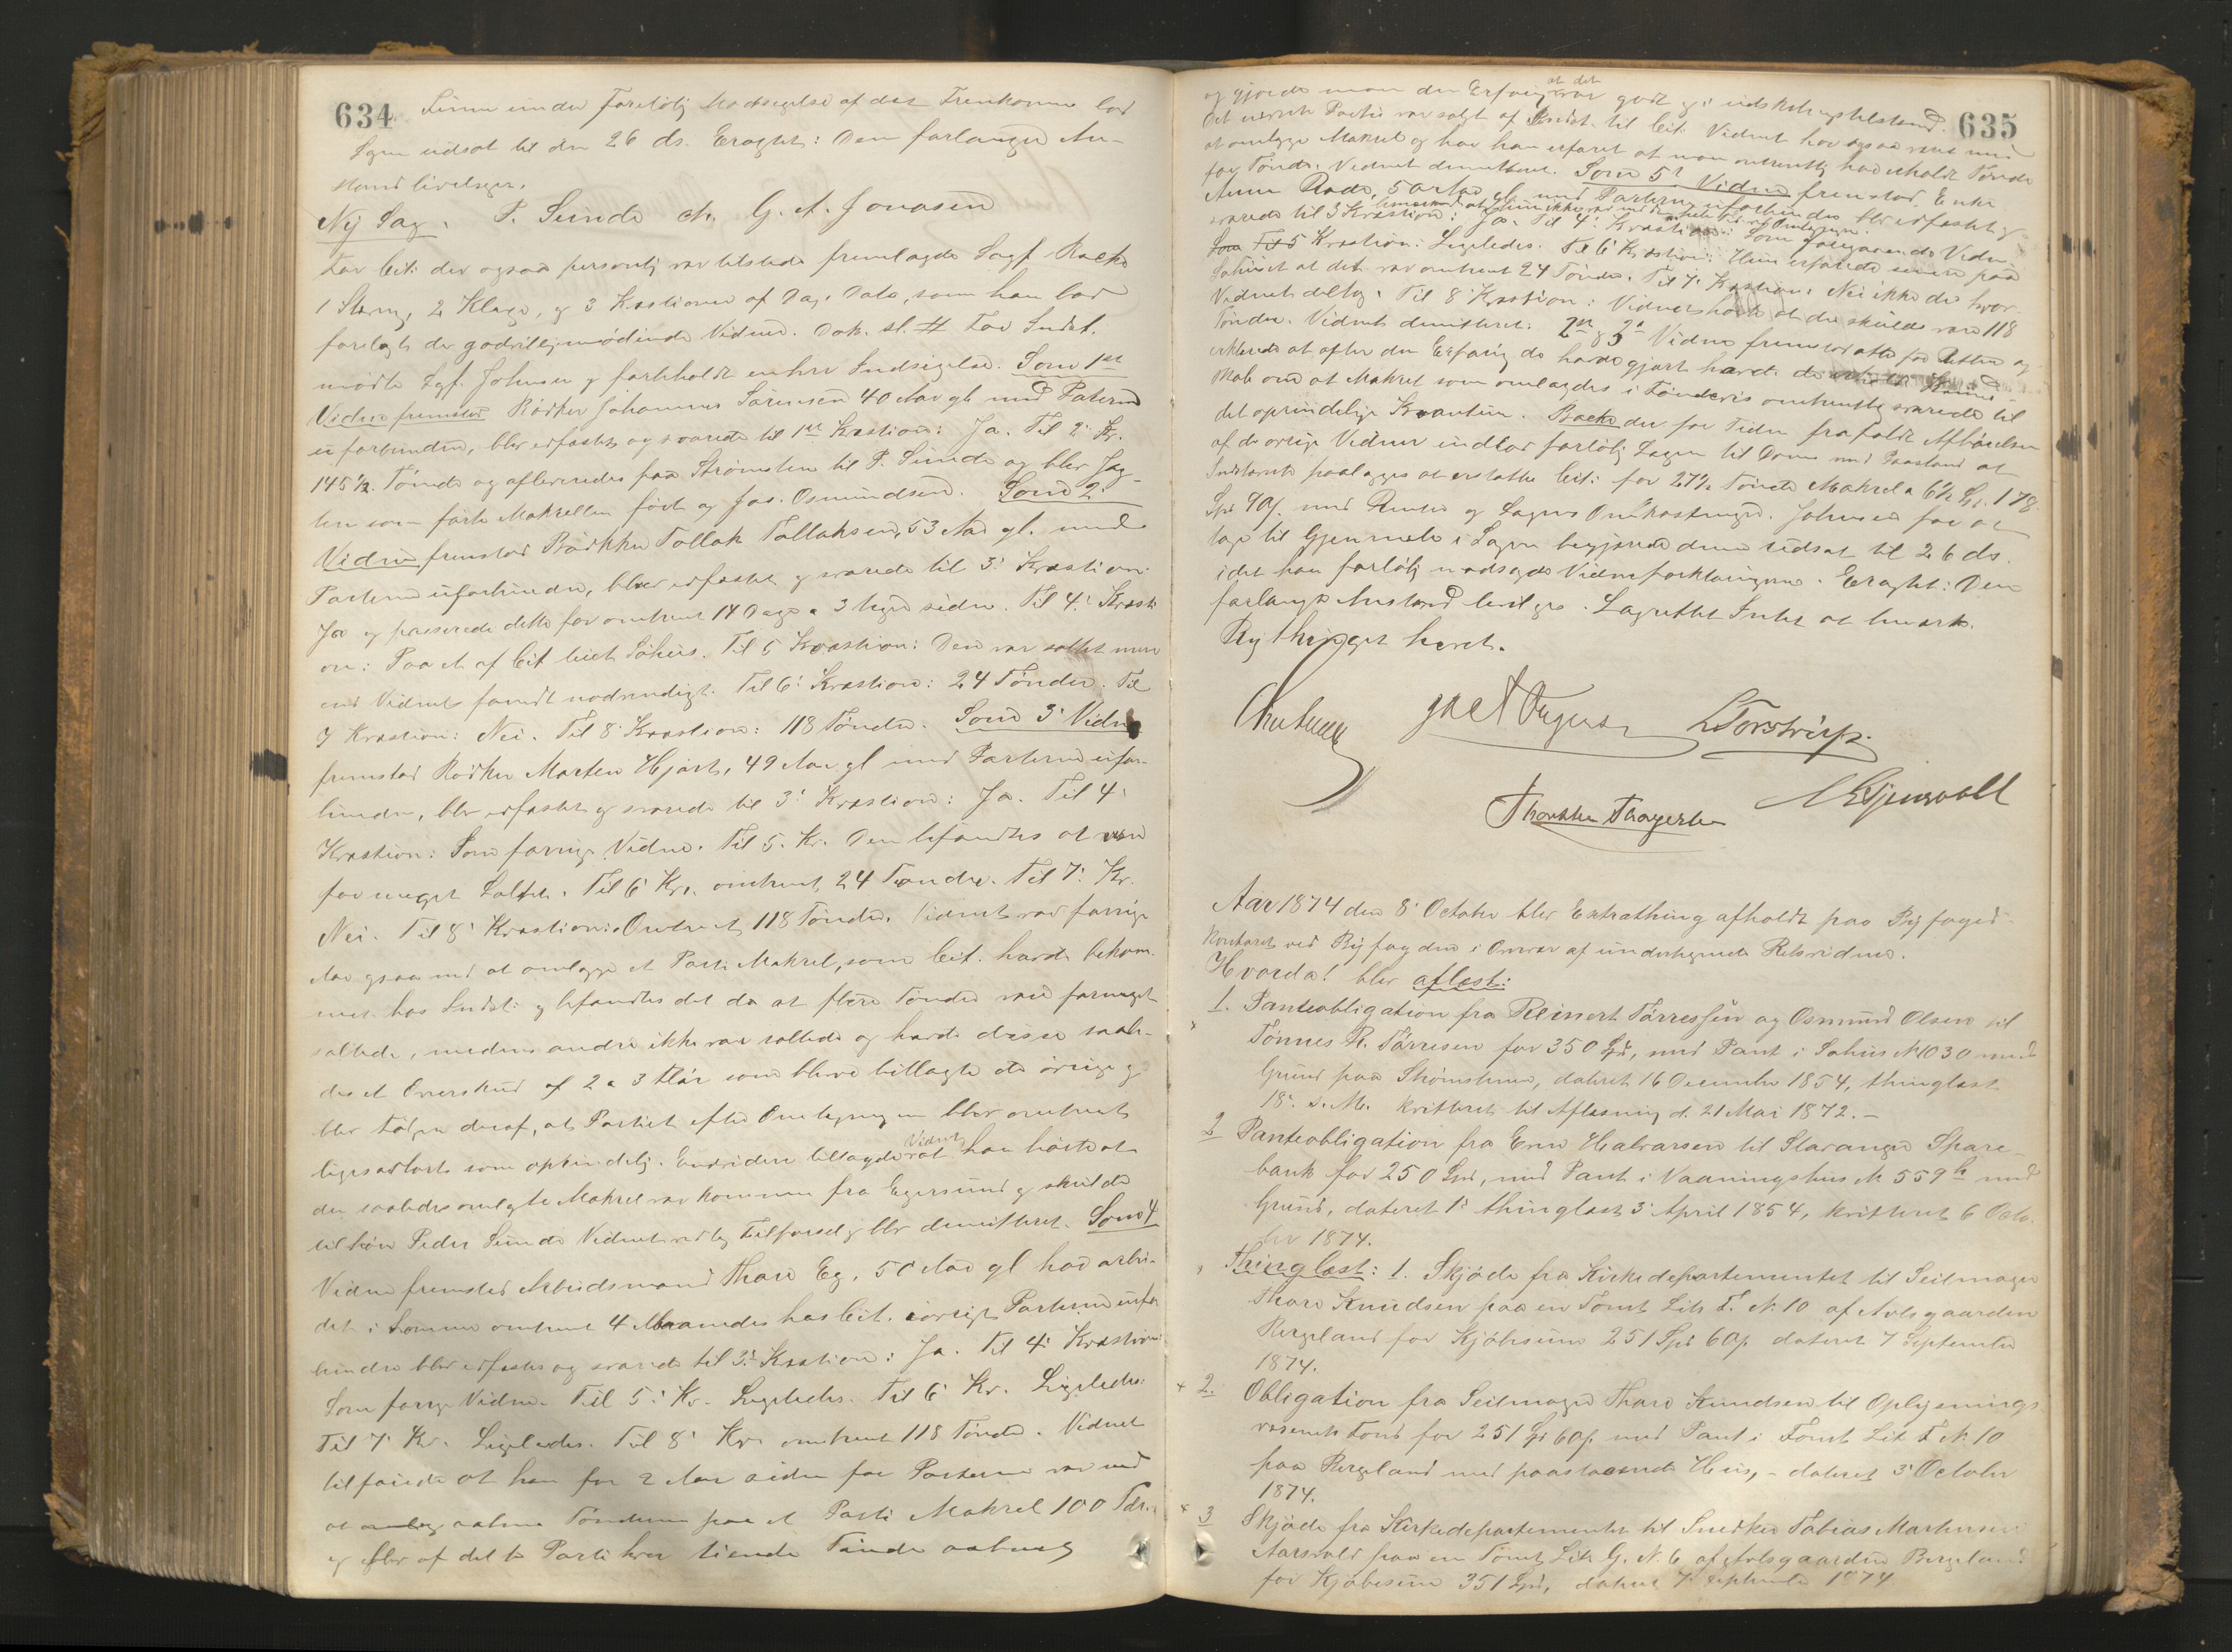 634
under foreløbig Modsigelse af det Fremkomne lod
Sagen udsat til den 26 ds. Eragtet: Den forlangte An-
stand bevilges.
Ny Sag. P. Sunde ctr. G. A. Jonasen
For Cit: der ogsaa personlig var tilstede fremlagde Sagf. Backe
1 Stevng, 2 Klage, og 3 Kvæstioner af Dags Dato, som han lod
forelagt de godvilligmødende Vidner. Dok. sl. # For Indst.
mødte Sgf. Johnsen og forbeholdt enhver Indsigelse. Som 1st
Vidne fremstod Bødker Johannes Sørensen 40 Aar gl. med Parterne
uforbunden, blev edfæstet og svarede til 1st Kvæstion: Ja. Til 2' Kv.
145½ Tønde og afleveredes paa Strømsten til P. Sunde og blev Jag-
ten som førte Makrellen ført af Jas. Osmundsen. Som 2'
Vidne fremstod Bødker Tollak Tollaksen, 53 Aar gl. med
Parterne uforbunden, blev edfæstet og svarede til 3' Kvæstion
Ja og passerede dette for omtrent 14 Dage a 3 Uger siden. Til 4' Kvæsti-
on: Paa et af Cit leiet Søhus. Til 5 Kvæstion: Den var saltet mere
end Vidnet fandt nødvendigt. Til 6' Kvæstion: 24 Tønder. Til
7 Kvæstion: Nei. Til 8' Kvæstion: 118 Tønder. Som 3' Vidne
fremstod Bødker Morten Hjort, 49 Aar gl med Parterne ufor-
bunden, blev edfæstet og svarede til 3' Kvæstion: Ja. Til 4'
Kvæstion: Som forrige Vidne. Til 5. Kv. Den befandtes at være
for meget Saltet. Til 6' Kv. omtrent 24 Tønder. Til 7' Kv.
Nei. Til 8' Kvæstion: Omtrent 118 Tønder. Vidnet var forrige
Aar ogsaa med at omlægge et Parti Makrel, som Cit. havde bekom-
met hos Indst: og befandtes det da at flere Tønder vare formeget
saltede, medens andre ikke var saltede og havde disse saale-
des et Overskud af 2 a 3 som bleve tillagte de øvrige og
blev Følgen deraf, at Partiet efter Omlægningen blev omtrent
ligesaastort som oprindelig. Endvidere tillagde Vidnet at han hørte at
den saaledes omlagte Makrel var kommen fra Egersund og skulde
tilhøre Peder Sunde Vidnet vedtog Tilførsel og blev demitteret. Som 4
Vidne fremstod Arbeidsmand Thore Eg, 50 Aar gl har arbei-
det i Sommer omtrent 4 Maaneder hos Cit. iøvrigt Parterne ufor-
bunden blev edfæstet og svarede til 3' Kvæstion: Ja. Til 4' Kvæstion:
Som forrige Vidne. Til 5' Kv. Ligeledes. Til 6' Kv. Ligeledes:
Til 7' Kv. Ligeledes. Til 8' Kv. omtrent 118 Tønder. Vidnet
tilføiede at han for 2 Aar siden for Parterne var med
at aabne Tønderne paa et Parti Makrel 100 Tdr.
og blev af dette Parti hver tiende Tønde aabnet
635
og gjorde man den Erfaring at det var godt og i udskibningstilstand.
Det nævnte Parti var solgt af Indst. til Cit. Vidnet har ogsaa været med
at omlægge Makrel og har han erfaret at man omtrentlig har erholdt Tønde
for Tønde. Vidnet demitteret. Som 5' Vidne fremstod Enke
Anne Rode, 50 Aar gl. med Parterne uforbunden blev edfæstet og
svarede til 3 Kvæstion: Ja. Til 4' Kvæstion: Som foregaaende Vidne
Til 5 Kvæstion: Ligeledes. Til 6' Kvæstion: Hun erfarede senere paa
Søhuset at det var omtrent 24 Tønder. Til 7' Kvæstion: Nei ikke de hvor
Vidnet deltog. Til 8' Kvæstion: Vidnet hørte at der skulde være 118
Tønder. Vidnet demitteret. 2n og 3' Vidne fremstod atter for Retten og
erklærede at efter den Erfaring de havde gjort
om at Makrel som omlagdes i Tøndevis omtrentlig svarede til
det oprindelige Kvantum. Backe der for Tiden frafaldt Afhørelsen
af de øvrige Vidner indlod foreløbig Sagen til Doms med Paastand at
Indstevnte paalægges at erstatte Cit: for 27½ Tønde Makrel a 6½ Spd. 178
Spd 90ß. med Renter og Sagens Omkostninger. Johnsen for at
tage til Gjenmæle i Sagen begjærede denne udsat til 26 ds.
idet han foreløbig modsagde Vidneforklaringerne. Eragtet: Den
forlangte Anstand bevilges. Lagrettet Intet at bemærke.
Bythinget hævet.
L Torstrup.
Thorsten Thorgersen
Aar 1874 den 8' October blev Extrathing afholdt paa Byfoged-
kontoret ved Byfogden i Overvær af undertegnede Retsvidner.
Hvorda! blev aflæst:
1. Panteobligation fra Reinert Tørressen og Osmund Olsen til
Tønnes R. Tørresen for 350 Spd, med Pant i Søhus No 1030 med
Grund paa Strømstenen, dateret 16 December 1854, thinglæst
18'. s. M. kvitteret til Aflæsning d. 21 Mai 1872. -
2 Panteobligation fra Even Halvorsen til Stavanger Spare-
bank for 250 Spd, med Pant i Vaaningshus No 559 b med
Grund, dateret 1' thinglæst 3' April 1854, kvitteret 6 Octo-
ber 1874.
Thinglæst: 1. Skjøde fra Kirkedepartementet til Seilmager
Thore Knudsen paa en Tomt Litr F. No 10 af Avlsgaarden
Bergeland for Kjøbesum 251 Spd 60ß dateret 7 September
1874.
2. Obligation fra Seilmager Thore Knudsen til Oplysnings-
væsenets Fond for 251 Spd 60ß. med Pant i Tomt Lit F No 10
paa Bergeland med paastaaende Hus, - dateret 3' October
1874.
3 Skjøde fra Kirkedepartementet til Snedker Tobias Martinsen
Aarsvold paa en Tomt Litr G. No 6 af Avlsgaarden Bergeland
for Kjøbesum 351 Spd, dateret 7' September 1874